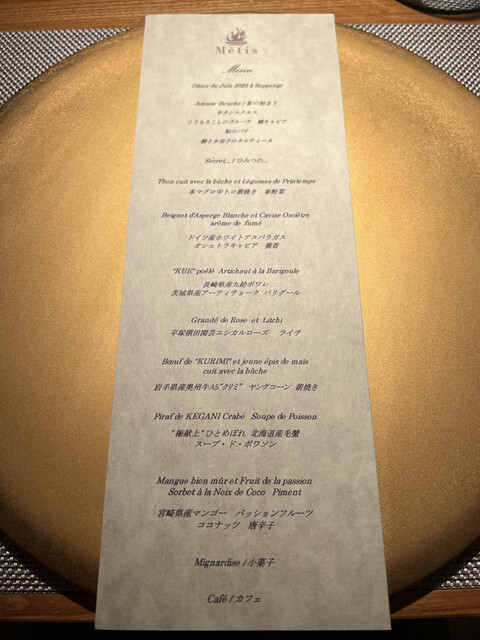 Métis
Menu
Dîner du Juin 2023 à Roppongi
Amuse-Bouche /宴の始まり
牛タンエクエス
とうもろこしのブルーテ 鱘キャビア
鮎のパテ
Secret... / ひみつの...
Thon cuit avec la bûche et Légumes de Printemps
本マグロ中トロ薪焼き 春野菜
Beignet d'Asperge Blanche et Caviar Osciètre
arôme de fumé
ドイツ産ホワイトアスパラガス
オシェトラキャビア 薫香
"KUE" poêlé Artichaut à la Barigoule
長崎県産九絵ポワレ
茨城県産アーティチョーク バリグール
Granité de Rose et Litchi
平塚横田園芸エシカルローズ ライチ
Bœuf de "KURIMI" et jeune épis de maïs
cuit avec la bûche
岩手県産奥州牛A5"クリミ" ヤングコーン 薪焼き
Piraf de KEGANI Crabe Soupe de Poisson
"極献上"ひとめぼれ 北海道産毛蟹
スープ・ド・ポワソン
Mangue bien mûr et Fruit de la passion
Sorbet à la Noix de Coco Piment
宮崎県産マンゴー パッションフルーツ
ココナッツ 唐辛子
Mignardise / 小菓子
Café / カフェ